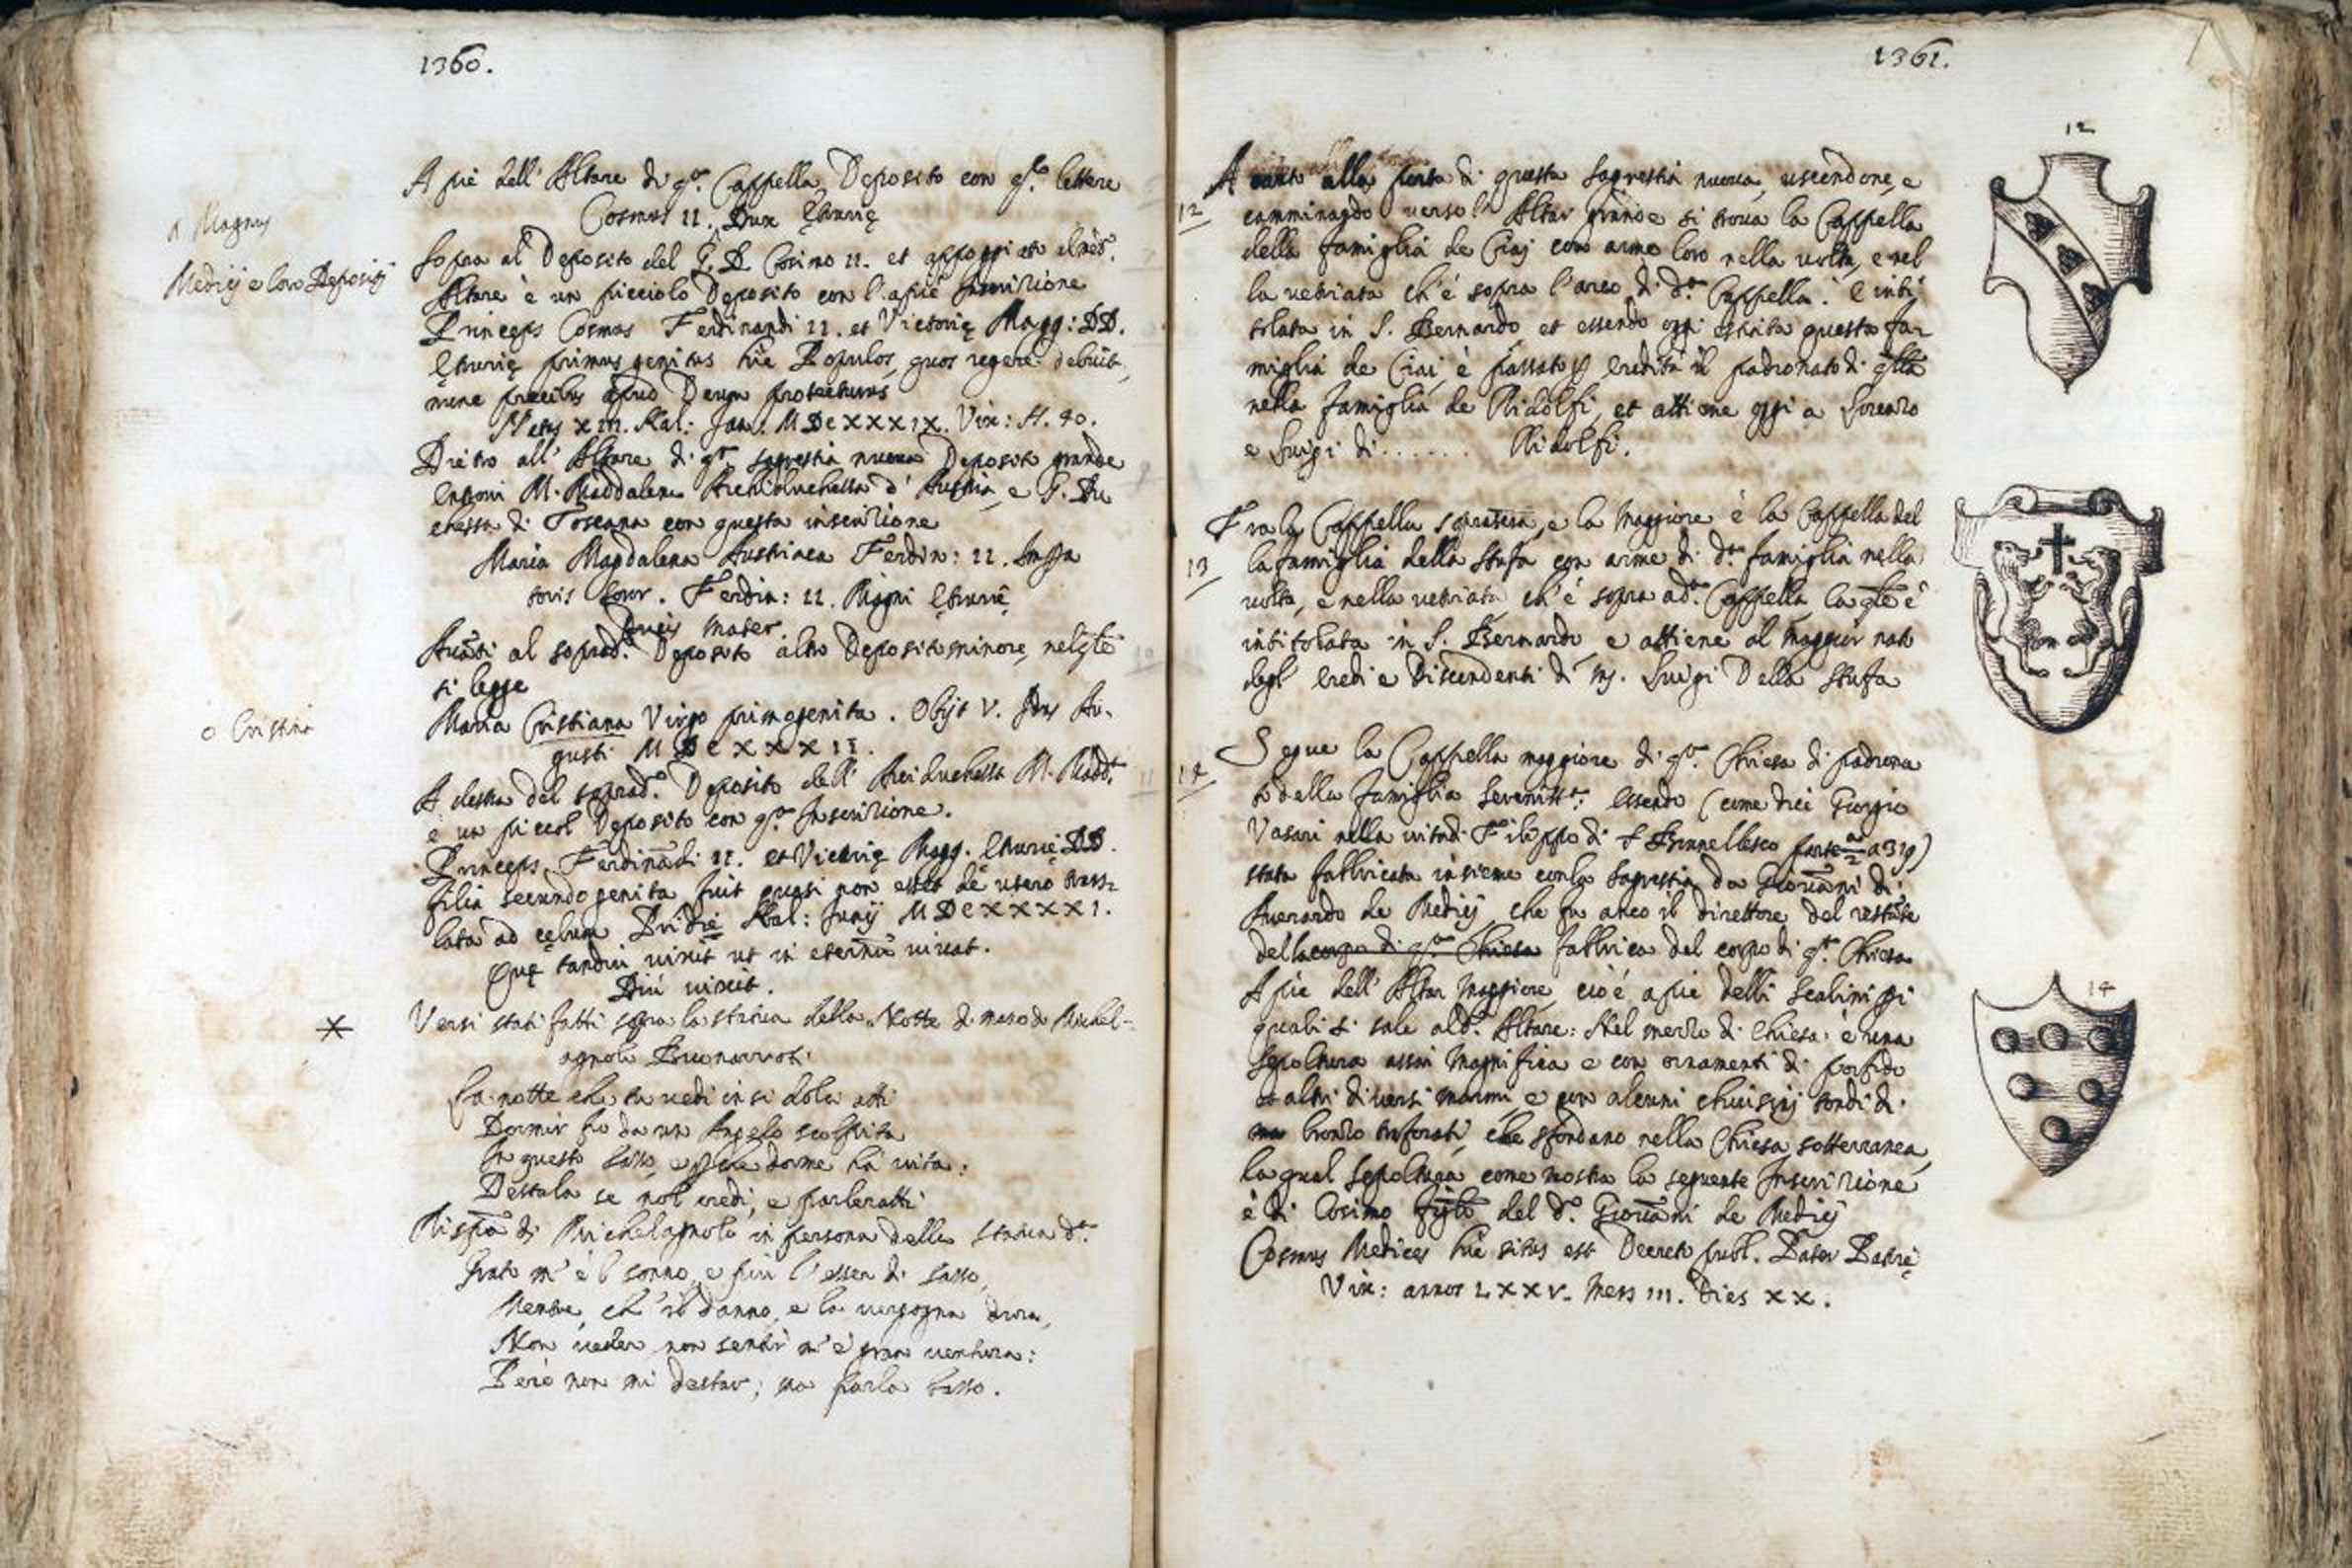 1360.
A piè dell' Altare di q.ª Cappella Deposito con q.te lettere
Cosmus II. Dux Etrurię
a Magnus
Sopra al Deposito del G. D. Cosimo II. et appoggiato al med.º
Medicij e loro Depositi
Altare è un picciolo Deposito con l'apiè Inscrizione
Princeps Cosmus Ferdinandi II. et Victorię Magg: DD.
Etrurię primus genitus hic Populos, quos regere debuit,
nunc precibus apud Deum protecturus
XIII. Kal: Jan: MDCXXXIX. Vix: H. 40.
Dietro all' Altare di q.ª sagrestia nuova Deposito grande
M. Maddalena Archiduchessa d' Austria, e G. Du
chessa di Toscana con questa inscrizione
Maria Magdalena Austriaca Ferdin: II. Impa
toris soror. Ferdin: II. Magni Etrurię
Ducis Mater.
Avãti al soprad.º Deposito altro Deposito minore, nel q̃le
si legge
Maria Cristiana Virgo primogenita. Obijt V. Idus Au-
o Cristina
gusti MDCXXXII.
A destra del soprad.º Deposito dell' Arciduchessa M. Madd.ª
è un piccol Deposito con q.ª Inscrizione.
Princeps Ferdinãdi II. et Victorię Magg. Etrurię DD.
filia secundo genita fuit quasi non esset de utero trans-
lata ad cęlum Pridie Kal: Junij MDCXXXXI.
Quę tandiu vixit ut in eternũ vivat.
Diu vixit.
* Versi stati fatti sopra la statua della Notte di mano di Michel-
agnolo Buonarroti
La notte che tu vedi in si dolci atti
Dormir fu da un Angelo scolpita
In questo sasso, e p̱che dorme hà vita:
Destala se nol credi, e parleratti
Rispta di Michelagnolo in persona della statua d.ª
Grato m' è l sonno, e piu l' esser di sasso,
Mentre, ch' il danno, e la vergogna dura,
Non veder non sentir m' è gran ventura:
Però non mi destar; ma parla basso.
1361.
12
A alla porta di questa Sagrestia nuova, uscendone, e
12 camminando verso l' Altar grande si trova la Cappella
della famiglia de Ciaj con arme loro nella volta, e nel
la vetriata ch' è sopra l' arco di d.ª Cappella. È inti
tolata in S. Bernardo et essendo oggi estinta questa fa-
miglia de Ciai è passato p eredità il padronato di q̃lla
nella famiglia de Ridolfi, et attiene oggi a Lorenzo
e Luigi di ...... Ridolfi.
Fra la Cappella, e la Maggiore è la Cappella del
13 la famiglia della Stufa con arme di d.ª famiglia nella
volta, e nella vetriata ch' è sopra a d.ª Cappella la q̃le è
intitolata in S. Bernardo e attiene al maggior nato
degl' eredi e Discendenti di Ms. Luigi Della Stufa
Segue la Cappella maggiore di q.ª Chiesa di padrona
14 to della famiglia Sereniss.ª essendo (come dice Giorgio
Vasari nella vita di Filippo di Brunellesco parte 2 a 319)
stata fabbricata insieme con la Sagrestia da Giovãni di
Averardo de Medicj che fu anco il direttore del
della corpo di q.ª Chiesa fabbrica del corpo di q.ª Chiesa
14
A piè dell' Altar Maggiore, cioè a piè delli scalini pi
quali si sale al d.º Altare: Nel mezzo di Chiesa è una
sepoltura assai Magnifica e con ornamenti di porfido
altri diversi marmi, e con alcuni tondi di
bronzo traforati, che sfondano nella Chiesa sotterranea,
la qual Sepoltura come mostra la seguente Inscrizione
è di Cosimo del d.º Giovãni de Medicj
Cosmus Medices hic situs est Decreto publ. Pater Patrię
Vix: annos LXXV. Mens III. Dies XX.